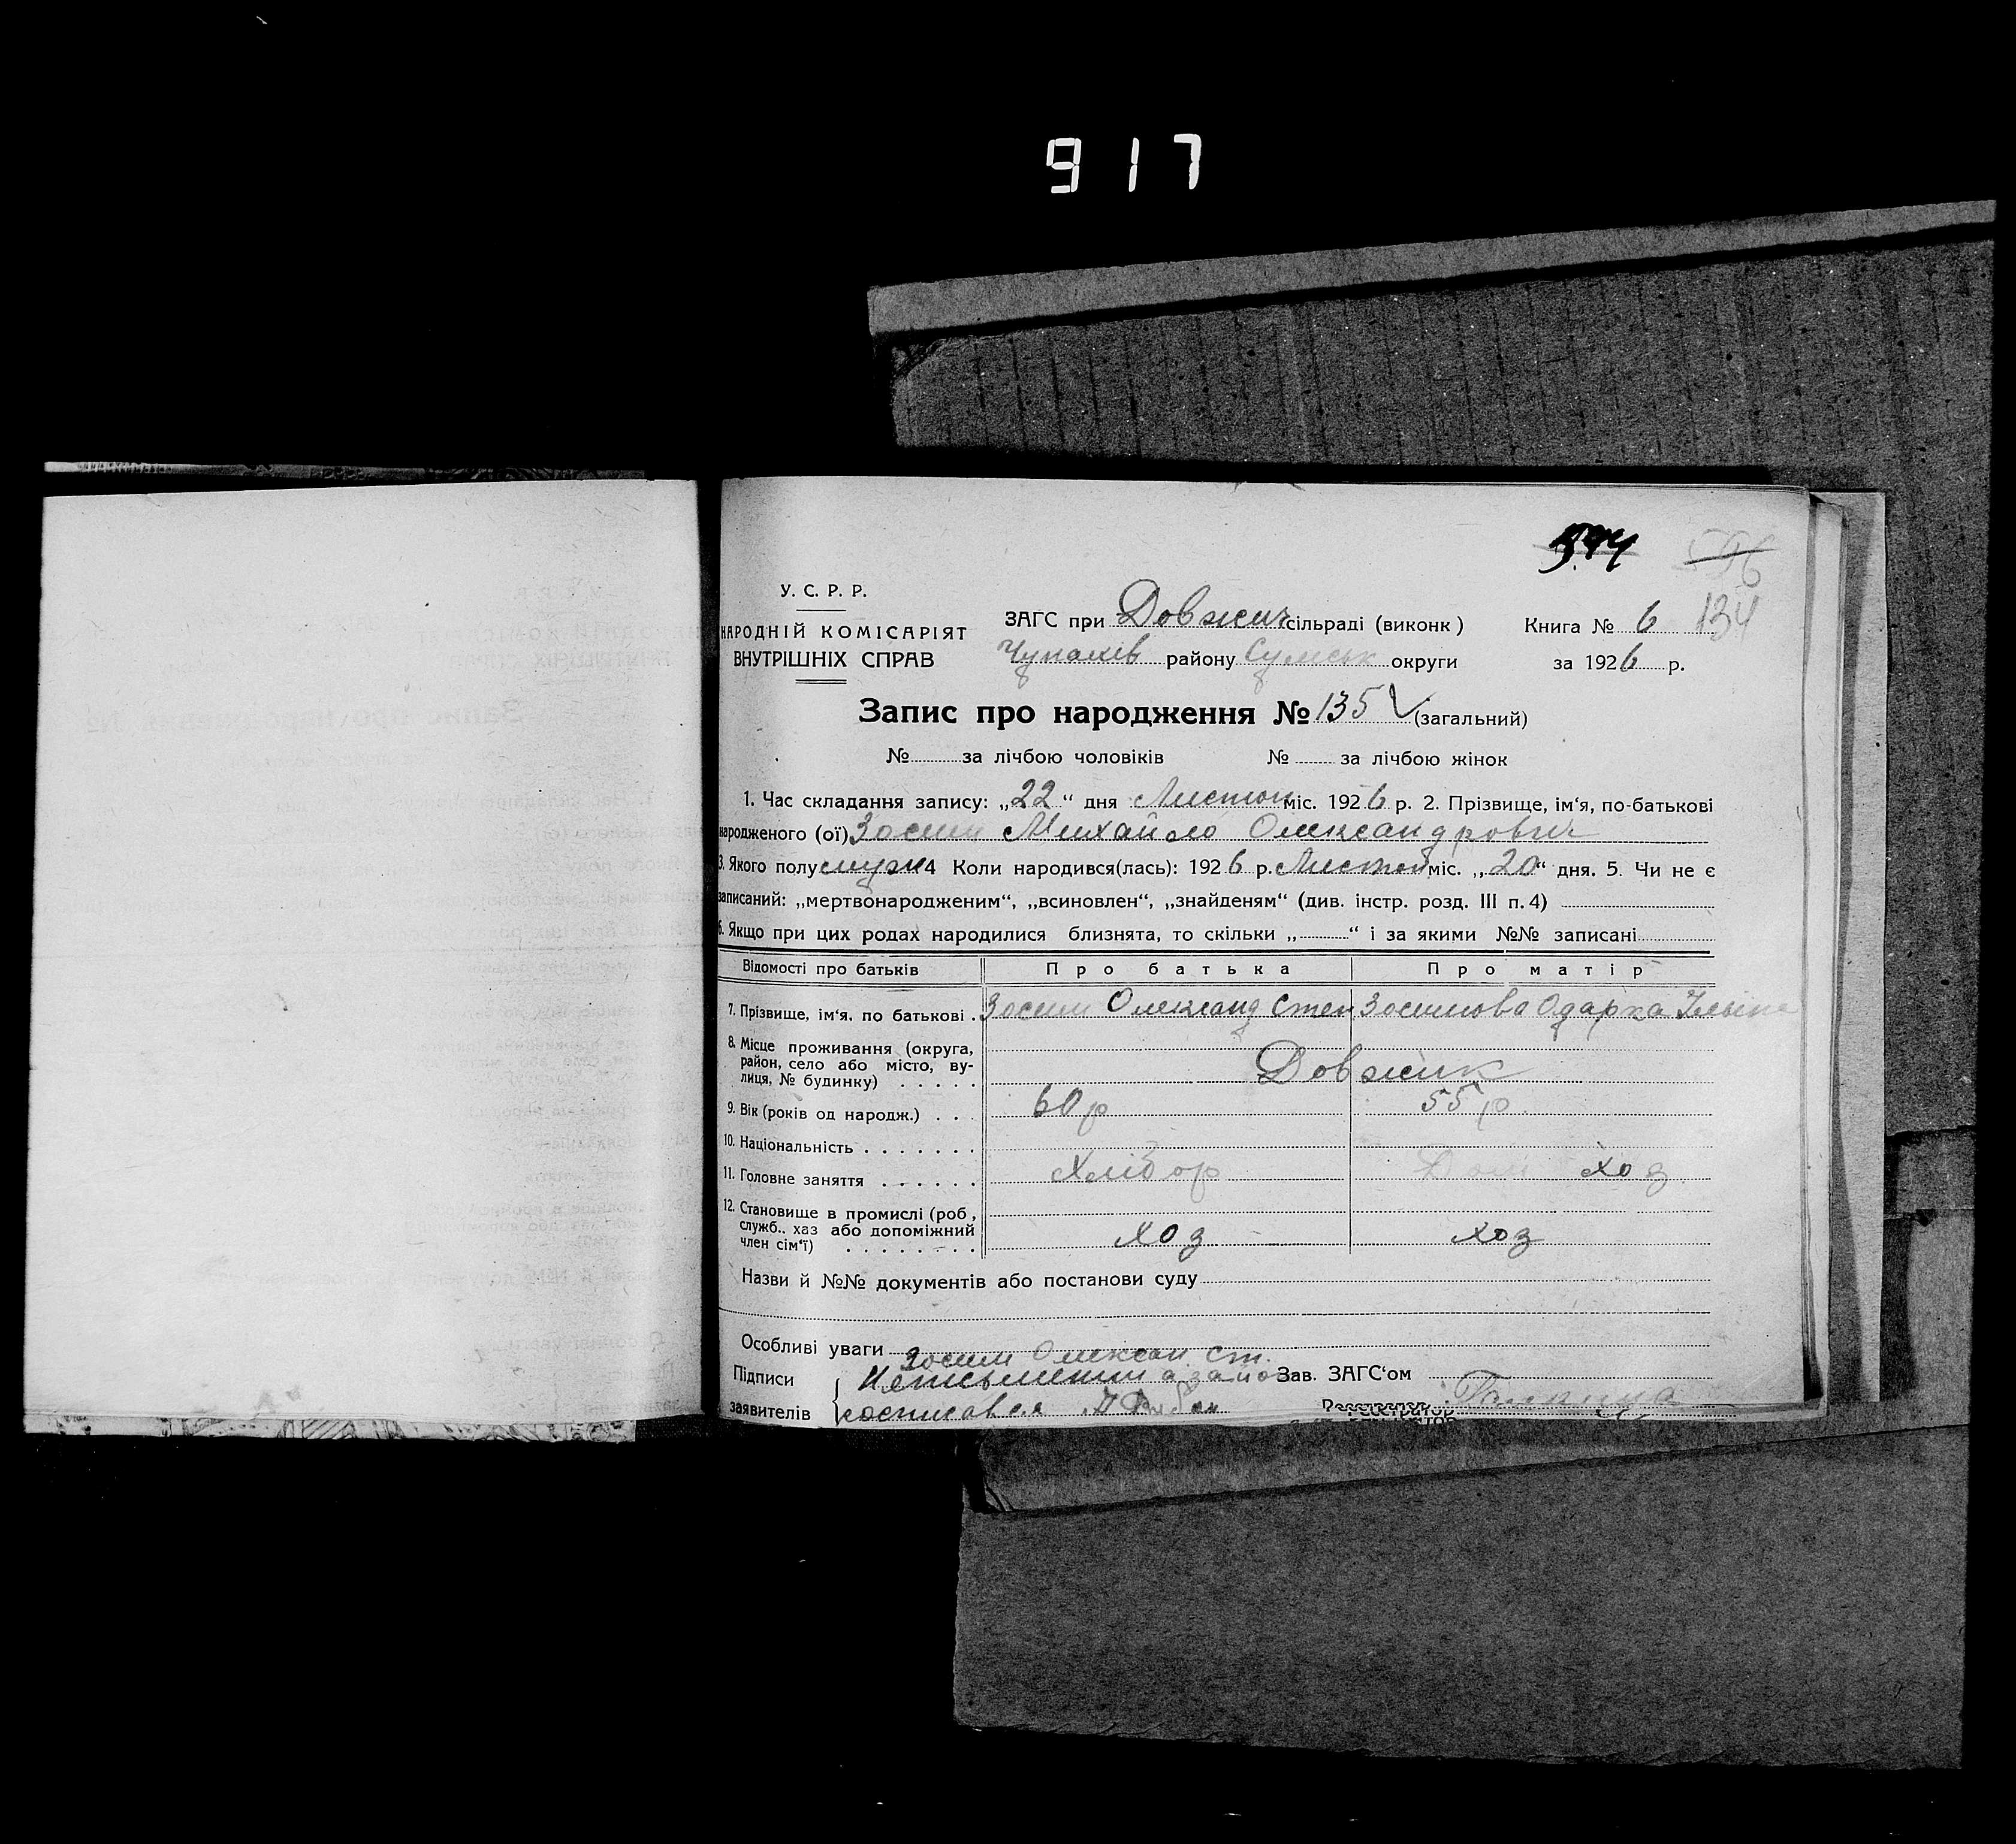 917
594 596
У. С. Р. Р.
НАРОДНІЙ КОМІСАРІЯТ
ВНУТРІШНІХ СПРАВ
ЗАГС при Довжич сільраді (виконк) Книга № 6 134
Чупахів району Сумськ округи за 1926 р.
Запис про народження № 135 (загальний)
№ за лічбою чоловіків № за лічбою жінок
1. Час складання запису: „22“ дня Листоп міс. 1926 р. 2. Прізвище, ім‘я, по-батькові
народженого (ої) Зосим Михайло Олександрович
3. Якого полу муж 4 Коли народився(лась): 1926 р. Листоп міс. „20“ дня. 5. Чи не є
записаний: „мертвонародженим“, „всиновлен“, „знайденям“ (див. інстр. розд. III п. 4)
6. Якщо при цих родах народилися близнята, то скільки „ “ і за якими №№ записані
Відомості про батьків Про батька Про матір
7. Прізвище, ім‘я, по батькові . Зосим Олександ Степ Зосимова Одарка Ільїн
8. Місце проживання (округа,
район, село або місто, ву-
лиця, № будинку) . . . . . Довжик
9. Вік (років од народж.) . . . 60 р 55 р
10. Національність . . . . . . .
11. Головне заняття . . . . . . Хлібор Дом хоз
12. Становище в промислі (роб,
служб.. хаз або допоміжний
член сім‘ї) . . . . . . . . хоз хоз
Назви й №№ документів або постанови суду
Особливі уваги
Зосим Олексан Ст.
Підписи Неписьменни а за його Зав. ЗАГС‘ом
заявителів росписався Реєстратор